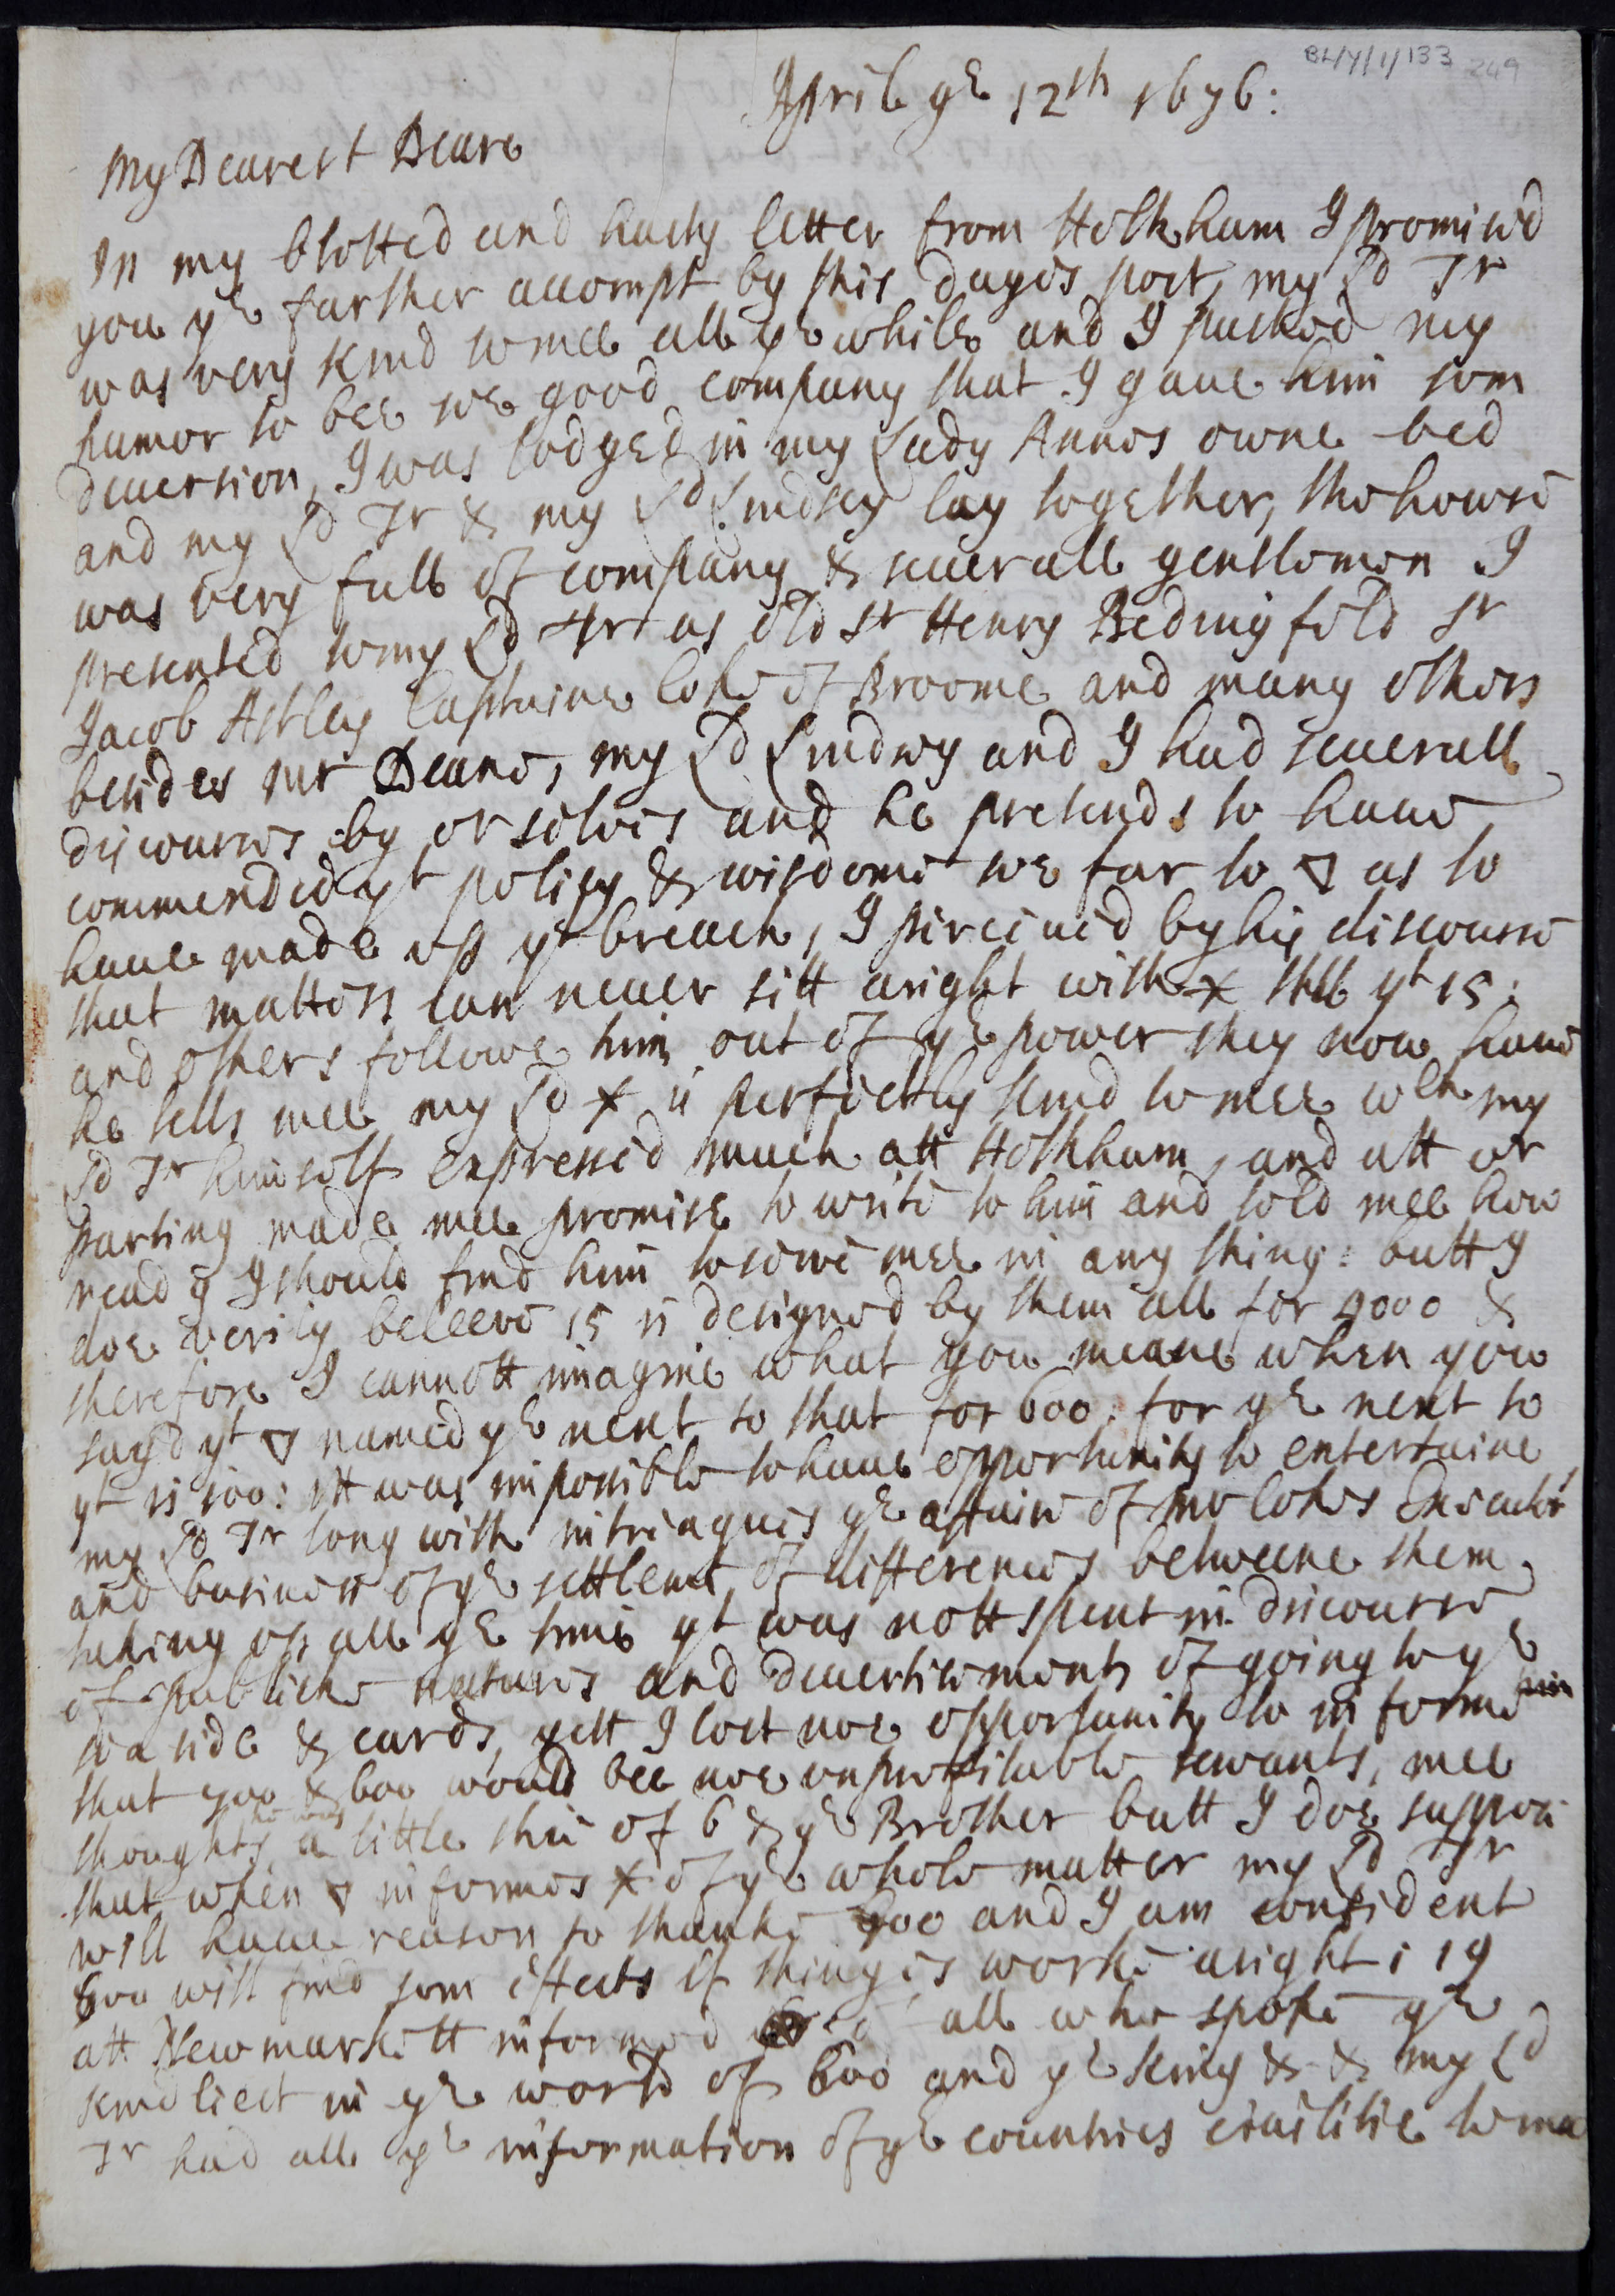 BL/Y/1/133 249
Aprill ye 12th 1676:
My Dearest Deare
In my blotted and hasty letter from Holkham I promised
you ye farther accompt by this dayes post, my Ld Tr
was very kind to mee all ye while and I packed my
humor to bee soe good company that I gaue him som
diuersion, I was lodged in my Lady Annes owne bed
and my Ld Tr & my Ld Lindsey lay together, the howse
was very full of company & seuerall gentlemen I
presented to my Ld Tr as old Sr Henry Bedingfild Sr
Jacob Astley Captaine Coke of Broome and many others
besides mr Deane, my Ld Lindsey and I had seuerall
discourses by orselues and he pretends to haue
commended yt policy & wisdome soe far to ▽ as to
haue made vp ye breach, I perceiued by his discourse
that matters can neuer sitt aright with x till yt 15:
and others followe him out of ye power they now haue
he tells mee my Ld x is perfectly kind to mee wch my
Ld Tr himself expressed much att Holkham, and att or
parting made mee promise to write to him and told mee how
ready I should find him to serue mee in any thing: butt I
doe verily beleeve 15 is designed by them all for 4000 &
therefore I cannott imagine what you meane when you
sayd yt ▽ named ye next to that for 600: for ye next to
yt is 500: itt was imposible to haue opportunity to entertaine
my Ld Tr long with intriagues ye affaire of mr Cokes Executor
and busines of ye settlemt of differences betweene them
taking vp all ye time yt was nott spent in discourse
of publicke natures and diuertisements of going to ye
sea side & cards, yett I lost noe opportunity to informe him
that 900 & 600 would bee noe unprofitable seruants, mee
thoughts he was a little shie of 6 & ye Brother butt I doe suppose
that when ▽ informes x of ye whole matter my Ld Tr
will haue reason to thanke 900 and I am confident
600 will find som effects if thinges worke aright: 19
att Newmarkett informed all who spoke ye
kindliest in ye world of 600 and ye King & & my Ld
Tr had all ye information of ye countries ciuilitie to mee